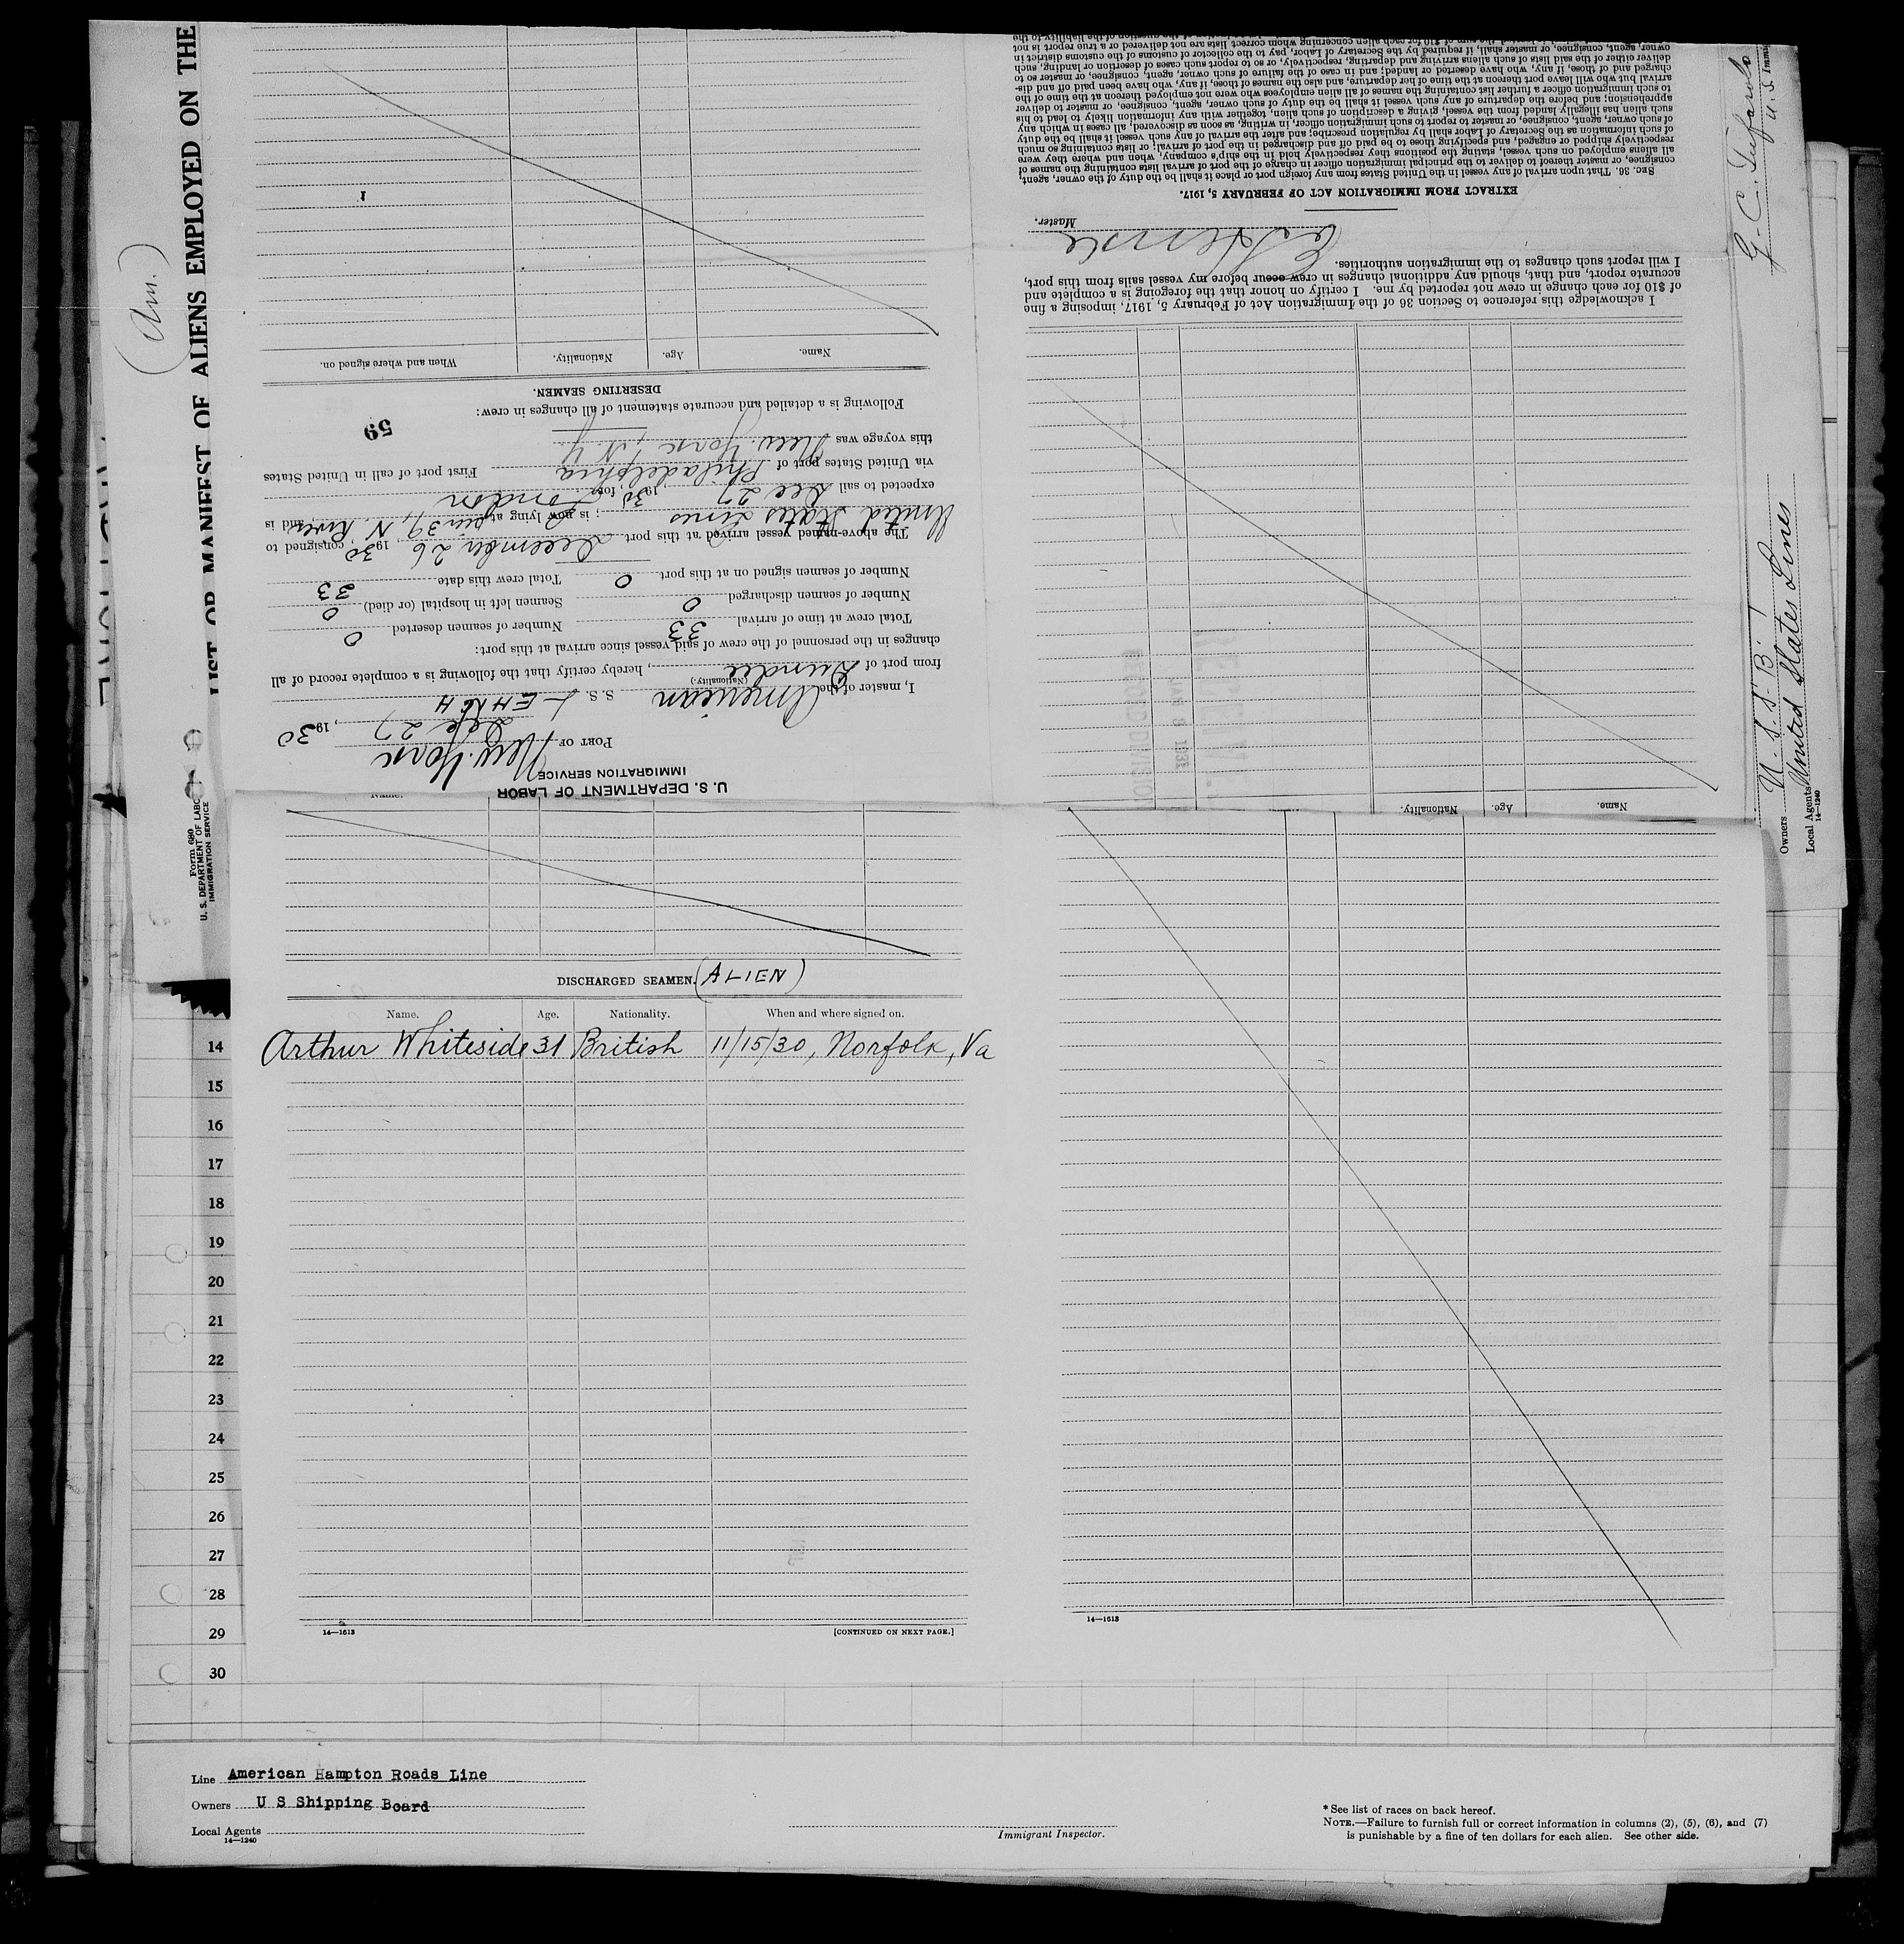 LIST OR MANIFEST OF ALIENS EMPLOYED ON THE
(Am.)
Form 680
U. S. DEPARTMENT OF LABOR
IMMIGRATION SERVICE
U. S. DEPARTMENT OF LABOR
IMMIGRATION SERVICE
PORT OF New York
Dec 27, 1930
I, master of the American S. S. LEHIGH
(Nationality.)
from port of Dundee, hereby certify that the following is a complete record of all
changes in the personnel of the crew of said vessel since arrival at this port:
Total crew at time of arrival 33 Number of seamen deserted 0
Number of seamen discharged 0 Seamen left in hospital (or died) 0
Number of seamen signed on at this port 0 Total crew this date 33
The above-named vessel arrived at this port December 26, 1930, consigned to
United States Lines; is now lying at Pier 39, N. River, and is
expected to sail Dec 27, 1930, for London
via United States port of Philadelphia First port of call in United States
this voyage was New York, N.Y
Following is a detailed and accurate statement of all changes in crew:
59
DESERTING SEAMEN.
Name. Age. Nationality. When and where signed on.
1
Name. Age. Nationality.
I acknowledge this reference to Section 36 of the Immigration Act of February 5, 1917, imposing a fine
of $10 for each change in crew not reported by me. I certify on honor that the foregoing is a complete and
accurate report, and that, should any additional changes in crew occur before my vessel sails from this port,
I will report such changes to the immigration authorities.
Master.
EXTRACT FROM IMMIGRATION ACT OF FEBRUARY 5, 1917.
SEC. 36. That upon arrival of any vessel in the United States from any foreign port or place it shall be the duty of the owner, agent,
consignee, or master thereof to deliver to the principal immigration officer in charge of the port of arrival lists containing the names of
all aliens employed on such vessel, stating the positions they respectively hold in the ship's company, when and where they were
respectively shipped or engaged, and specifying those to be paid off and discharged in the port of arrival; or lists containing so much
of such information as the Secretary of Labor shall by regulation prescribe; and after the arrival of any such vessel it shall be the duty
of such owner, agent, consignee, or master to report to such immigration officer, in writing, as soon as discovered, all cases in which any
such alien has illegally landed from the vessel, giving a description of such alien, together with any information likely to lead to his
apprehension; and before the departure of any such vessel it shall be the duty of such owner, agent, consignee, or master to deliver
to such immigration officer a further list containing the names of all alien employees who were not employed thereon at the time of the
arrival but who will leave port thereon at the time of her departure, and also the names of those, if any, who have been paid off and dis-
charged and of those, if any, who have deserted or landed; and in case of the failure of such owner, agent, consignee, or master so to
deliver either of the said lists of such aliens arriving and departing, respectively, or so to report such cases of desertion or landing, such
owner, agent, consignee, or master shall, if required by the Secretary of Labor, pay to the collector of customs of the customs district in
Owners U. S. S. B.
Local Agents United States Lines
14—1240
DISCHARGED SEAMEN. (ALIEN)
Name. Age. Nationality. When and where signed on.
Arthur Whiteside 31 British 11/15/30, Norfolk, Va
14
15
16
17
18
19
20
21
22
23
24
25
26
27
28
29
30
14—1613 [CONTINUED ON NEXT PAGE.]
14—1613
Line American Hampton Roads Line
Owners U S Shipping Board
Local Agents
14—1240
Immigrant Inspector.
* See list of races on back hereof.
NOTE.—Failure to furnish full or correct information in columns (2), (5), (6), and (7)
is punishable by a fine of ten dollars for each alien. See other side.